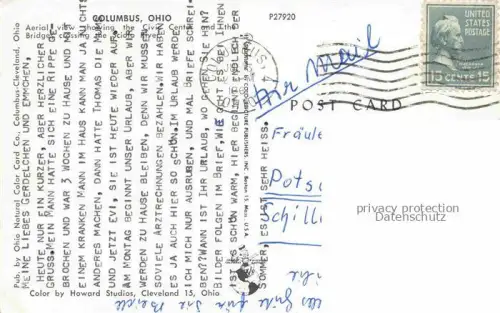 COLUMBUS, OHIO
Aerial view showing the Civic Center and
Bridges crossing the Scioto River
P27920
Pub. by Ohio Natural Color Card Co., Columbus-Cleveland, Ohio
MEINE LIEBES GERDELCHEN UND EMMCHEN,
HEUTE NUR EIN KURZER, ABER HERZLICHER
GRUSS. MEIN MANN HATTE SICH EINE RIPPE GE-
BROCHEN UND WAR 3 WOCHEN ZU HAUSE UND MIT
EINEM KRANKEN MANN IM HAUS KANN MAN JA NICHTS
ANDERES MACHEN, DANN HATTE THOMAS DIE
UND JETZT EVI, SIE IST HEUTE WIEDER AUF.
AM MONTAG BEGINNT UNSER URLAUB, ABER WIR
WERDEN ZU HAUSE BLEIBEN, DENN WIR MUSSEN
SOVIELE ARZTRECHNUNGEN BEZAHLEN. WIR HABEN
ES JA AUCH HIER SO SCHÖN. IM URLAUB WERDE
ICH MICH NUR AUSRUHEN, UND MAL BRIEFE SCHREI-
BEN?? WANN IST IHR URLAUB, WO GEHEN SIE HIN?
BILDER FOLGEN IM BRIEF, WIE GEHT ES BEI IHNEN
IST ES SCHÖN WARM, HIER BEGINNT ENDLICH DER
SOMMER, ES IST SEHR HEISS.
Color by Howard Studios, Cleveland 15, Ohio
Air Mail
POST CARD
UNITED STATES POSTAGE
15 CENTS 15
Fräule
Potsd
Schill
privacy protection
Datenschutz
Alles Gute für Sie Beide